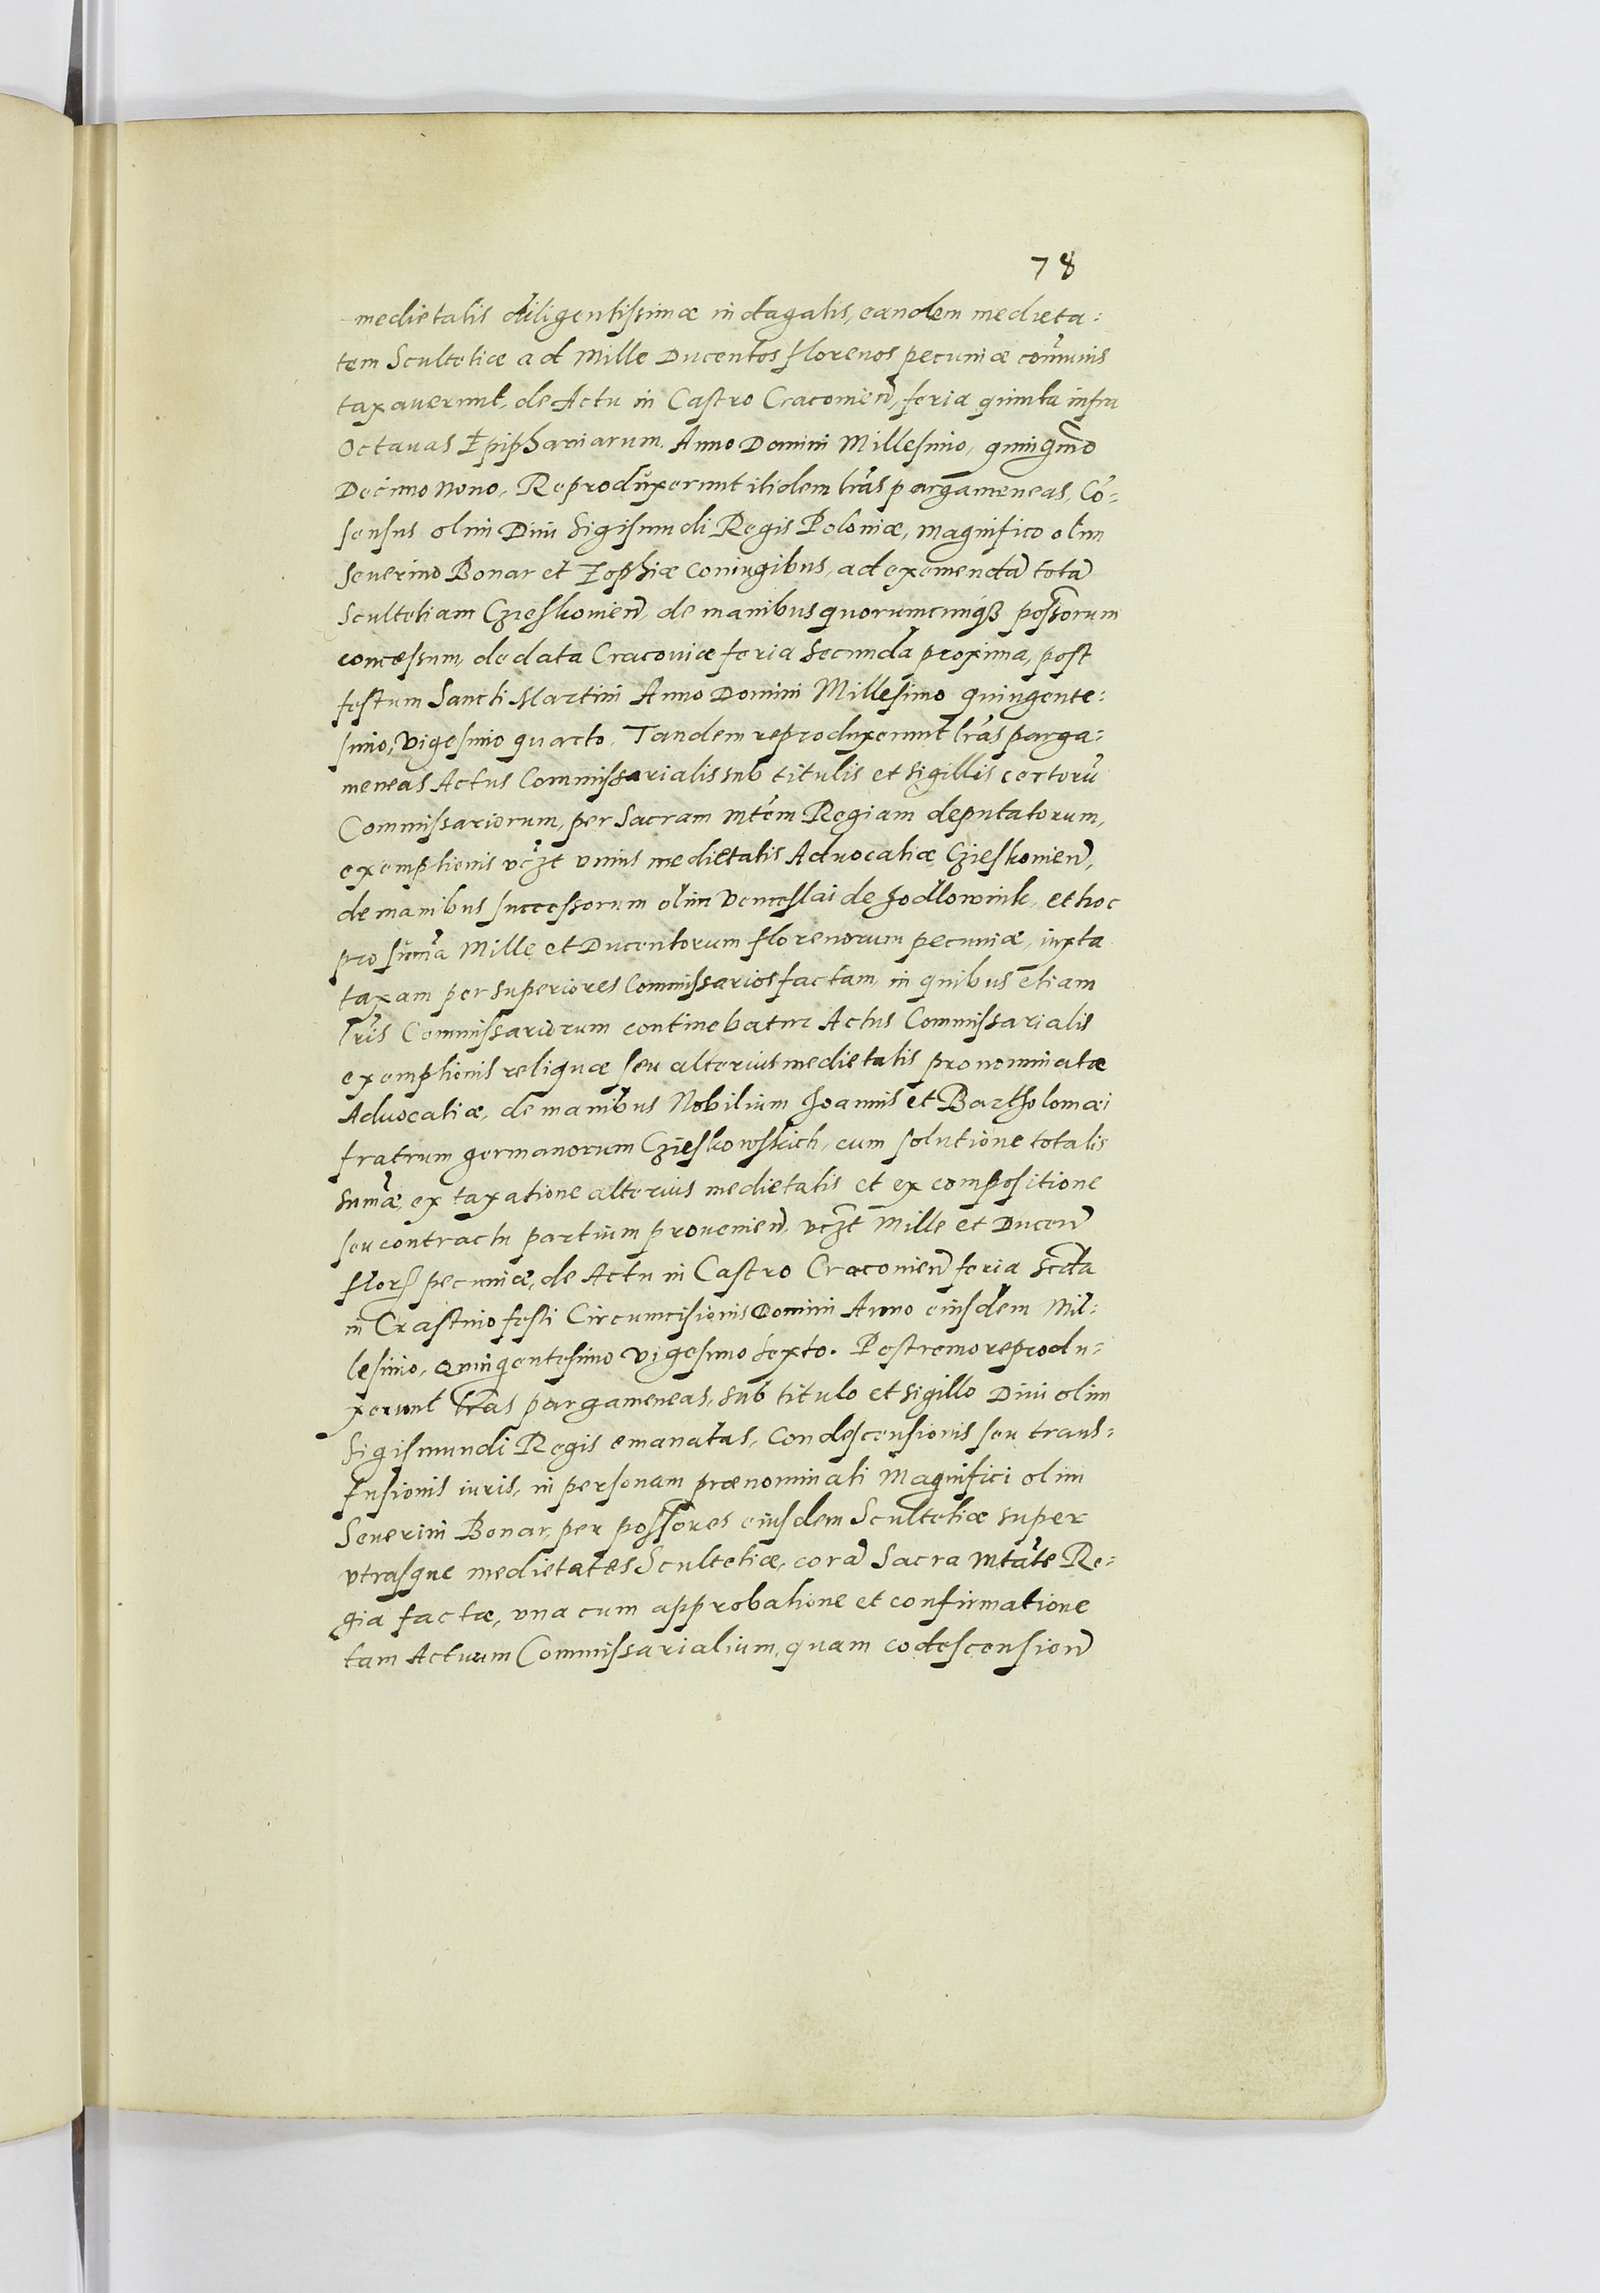 78
medietatis diligentissimæ indagatis, eandem medieta:
tem Scultetiæ ad Mille Ducentos florenos pecuniæ com̃unis
taxauerunt, de Actu in Castro Cracouien̄, feria quinta infra
Octauas Epiphaniarum. Anno Domini Millesimo, quingm̃o
Decimo Nono. Reproduxerunt itidem lr̃as pargameneas, Cõ-
sensus olim Diui Sigismundi Regis Poloniæ, Magnifico olim
Seuerino Bonar et Zophiæ Coniugibus, ad exemendã totã
Scultetiam Czieskouien̄, de manibus quorumcunqꝫ posso̅rum
concessum, de data Cracouiæ feria Secunda proxima, post
festum Sancti Martini Anno Domini Millesimo quingente:
simo, Vigesimo quarto. Tandem reproduxerunt lr̃as parga:
meneas Actus Commissarialis sub titulis et sigillis certorũ
Commissariorum, per Sacram Mtẽm Regiam deputatorum,
exemptionis vcz̃t vnius medietatis Aduocatiæ Czieskouien̄,
de manibus successorum olim Venceslai de Jodlownik, et hoc
pro sum̃a Mille et Ducentorum florenorum pecuniæ, iuxta
taxam per superiores Commissarios factam, in quibus etiam
lr̃is Commissariorum continebatur Actus Commissarialis
exemptionis reliquæ seu alterius medietatis pronominatæ
Aduocatiæ, de manibus Nobilium Joannis et Bartholomæi
fratrum germanorum Czieskowskich, cum solutione totalis
Sum̃æ, ex taxatione alterius medietatis et ex compositione
seu contractu partium prouenien̄, vcz̃t Mille et Ducen̄
flor. pecuniæ, de Actu in Castro Cracouien̄ feria Scd̃a
in Crastino festi Circumcisionis Domini Anno eiusdem Mil:
lesimo, Quingentesimo Vigesimo Sexto. Postremo reprodu-
xerunt lr̃as pargameneas, sub titulo et sigillo Diui olim
Sigismundi Regis emanatas, Condescensionis seu trans-
fusionis iuris, in personam prænominati Magnifici olim
Seuerini Bonar, per posso̅res eiusdem Scultetiæ super
vtrasque medietates Scultetiæ, corã Sacra Mtãte Re-
gia factæ, vna cum approbatione et confirmatione
tam Actuum Commissarialium, quam codescension̄